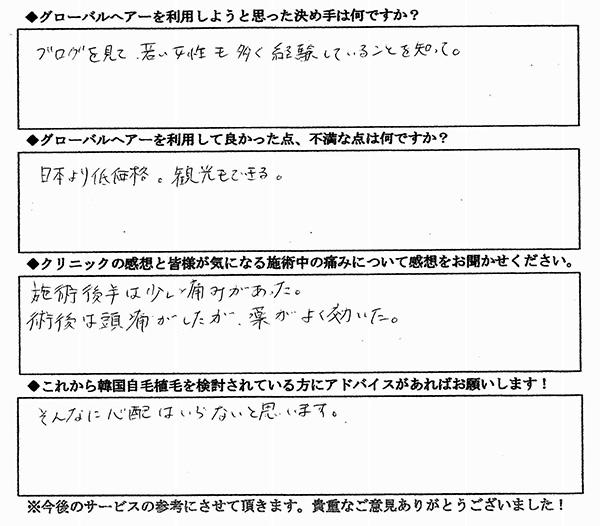 ◆グローバルヘアーを利用しようと思った決め手は何ですか？
ブログを見て、若い女性も多く経験していることを知って。
◆グローバルヘアーを利用して良かった点、不満な点は何ですか？
日本より低価格。観光もできる。
◆クリニックの感想と皆様が気になる施術中の痛みについて感想をお聞かせください。
施術後半は少し痛みがあった。
術後は頭痛がしたが、薬がよく効いた。
◆これから韓国自毛植毛を検討されている方にアドバイスがあればお願いします！
そんなに心配はいらないと思います。
※今後のサービスの参考にさせて頂きます。貴重なご意見ありがとうございました！